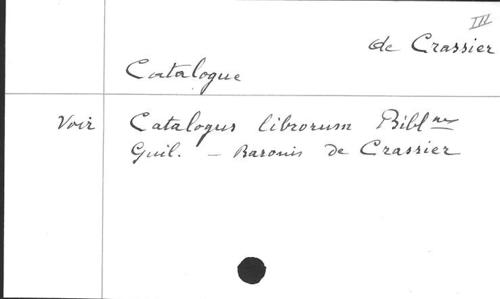 III
de Crassier
Catalogue
Voir Catalogus librorum Bibl
Guil. - Baronis de Crassier